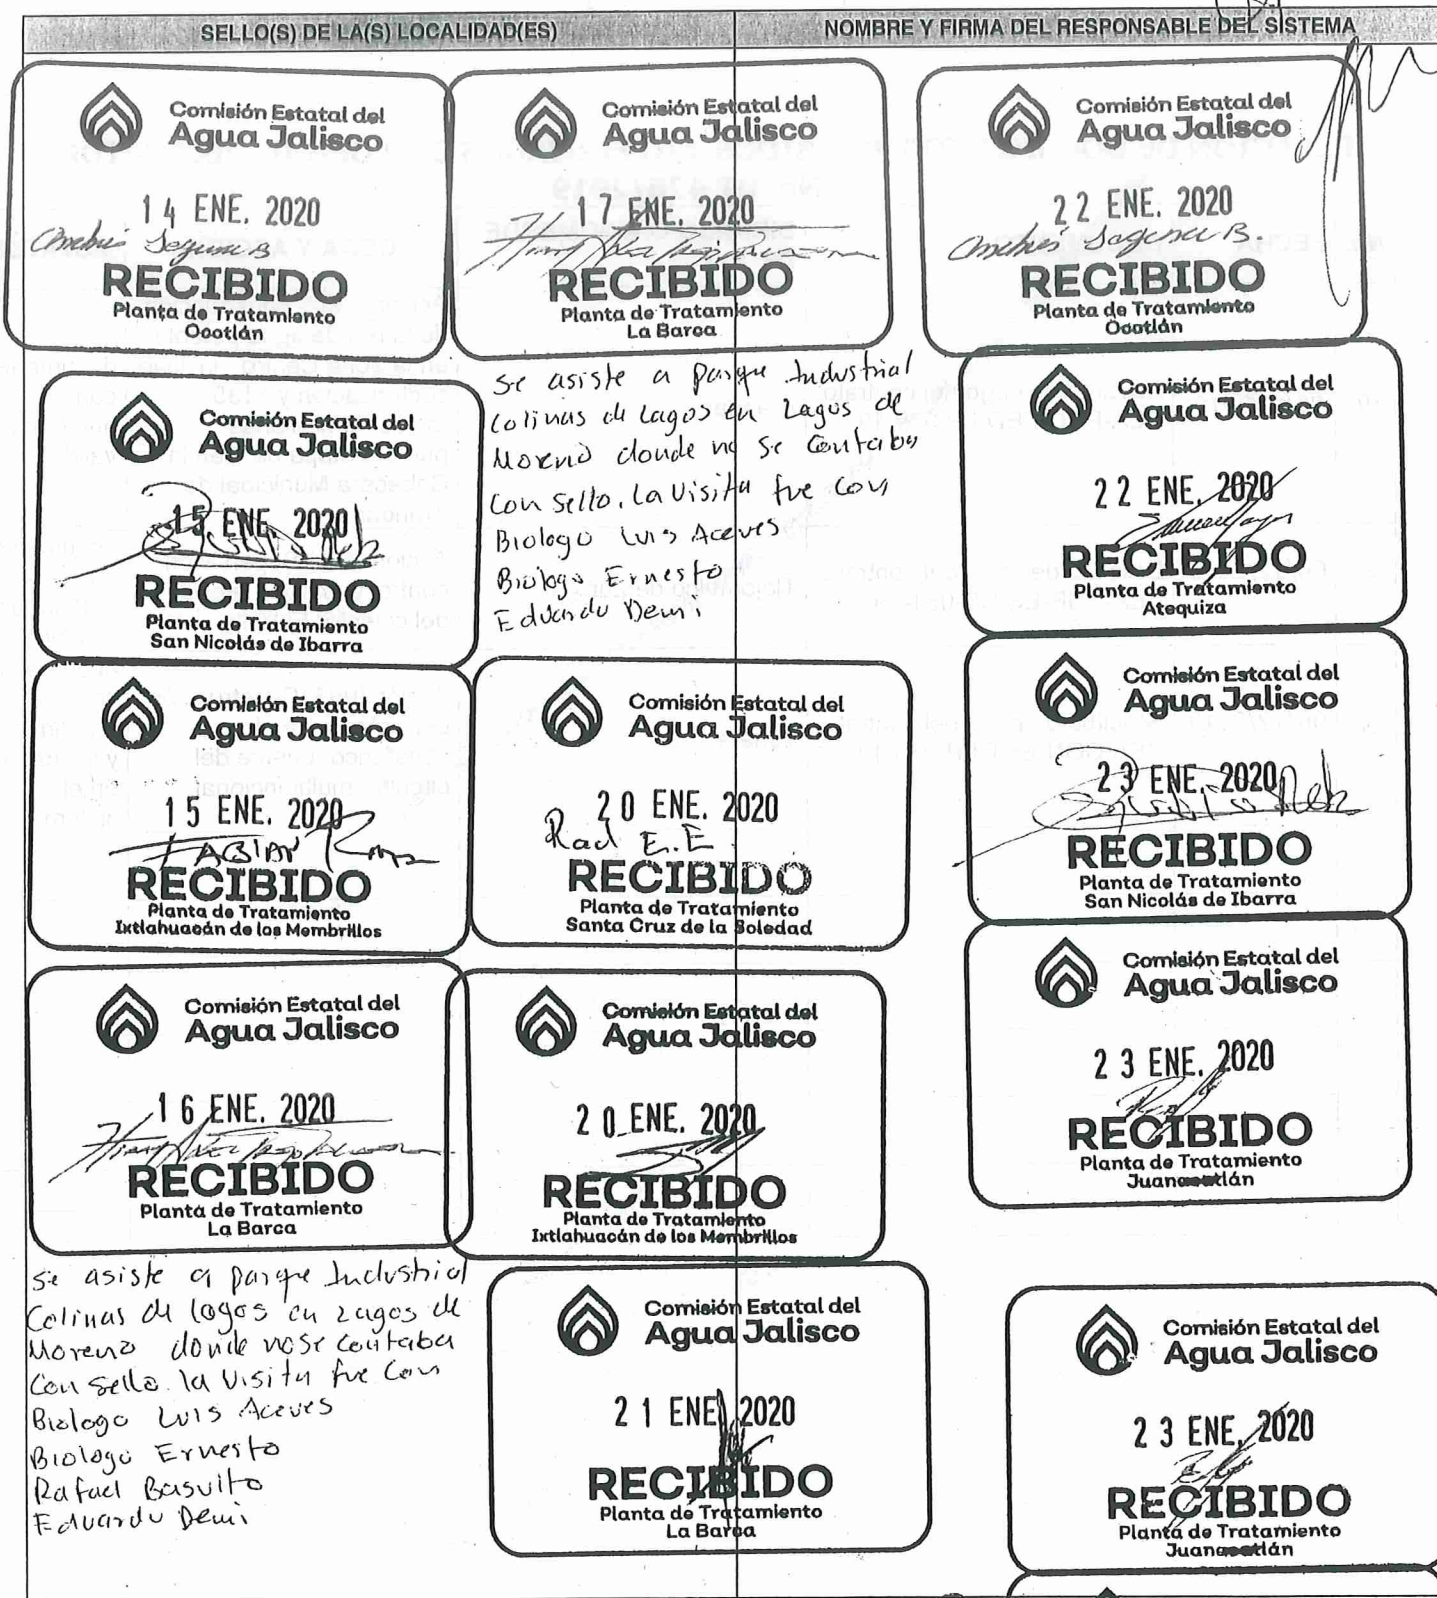 SELLO(S) DE LA(S) LOCALIDAD(ES)
NOMBRE Y FIRMA DEL RESPONSABLE DEL SISTEMA
Comisión Estatal del
Agua Jalisco
14 ENE. 2020
RECIBIDO
Planta de Tratamiento
Ocotlán
Comisión Estatal del
Agua Jalisco
15 ENE. 2020
RECIBIDO
Planta de Tratamiento
San Nicolás de Ibarra
Comisión Estatal del
Agua Jalisco
15 ENE. 2020
FABIAN
RECIBIDO
Planta de Tratamiento
Ixtlahuacán de los Membrillos
Comisión Estatal del
Agua Jalisco
16 ENE. 2020
RECIBIDO
Planta de Tratamiento
La Barca
Se asiste a parque Industrial
Colinas de lagos en Lagos de
Moreno donde no se contaba
Con sello. la Visita fue Con
Biologo Luis Aceves
Biologo Ernesto
Rafael Basulto
Eduardo Demi
Comisión Estatal del
Agua Jalisco
17 ENE. 2020
RECIBIDO
Planta de Tratamiento
La Barca
Se asiste a parque Industrial
Colinas de Lagos en Lagos de
Moreno donde no se Contaba
Con sello. La Visita fue Con
Biologo Luis Aceves
Biologo Ernesto
Eduardo Demi
Comisión Estatal del
Agua Jalisco
20 ENE. 2020
E.E
RECIBIDO
Planta de Tratamiento
Santa Cruz de la Soledad
Comisión Estatal del
Agua Jalisco
20 ENE. 2020
RECIBIDO
Planta de Tratamiento
Ixtlahuacán de los Membrillos
Comisión Estatal del
Agua Jalisco
21 ENE 2020
RECIBIDO
Planta de Tratamiento
La Barca
Comisión Estatal del
Agua Jalisco
22 ENE. 2020
RECIBIDO
Planta de Tratamiento
Ocotlán
Comisión Estatal del
Agua Jalisco
22 ENE. 2020
RECIBIDO
Planta de Tratamiento
Atequiza
Comisión Estatal del
Agua Jalisco
23 ENE. 2020
RECIBIDO
Planta de Tratamiento
San Nicolás de Ibarra
Comisión Estatal del
Agua Jalisco
23 ENE. 2020
RECIBIDO
Planta de Tratamiento
Juanacatlán
Comisión Estatal del
Agua Jalisco
23 ENE. 2020
RECIBIDO
Planta de Tratamiento
Juanacatlán